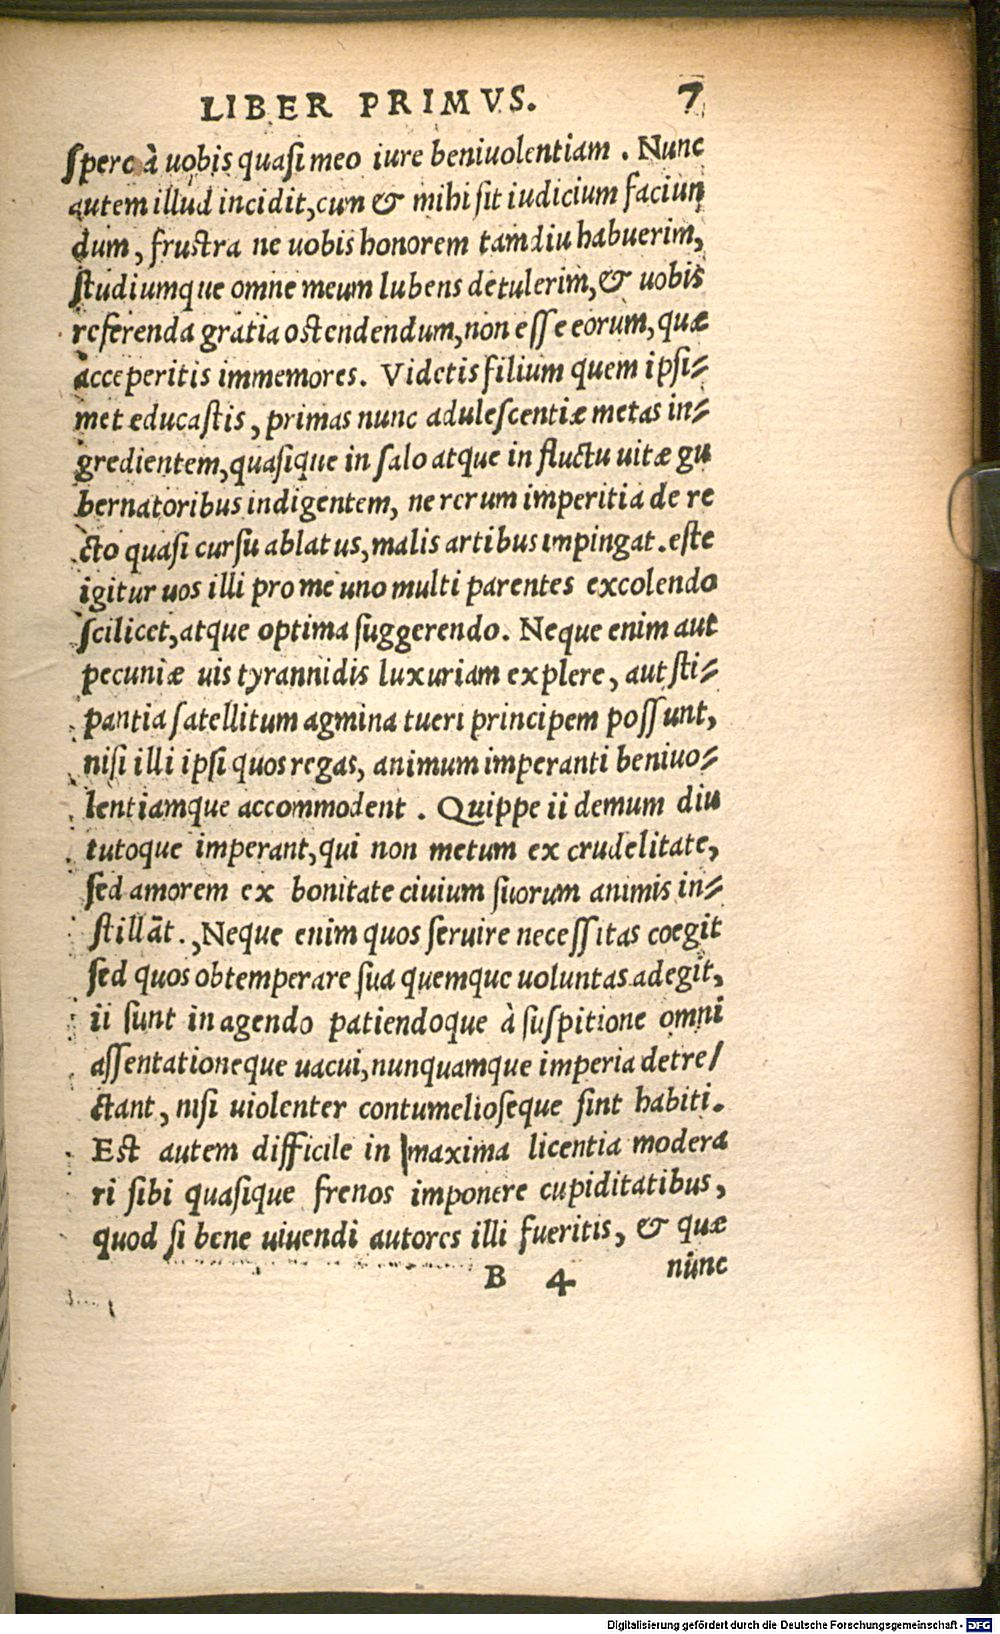 LIBER PRIMVS. 7
spero à uobis quasi meo iure beniuolentiam . Nunc
autem illud incidit, cum & mihi sit iudicium faciun
dum, frustra ne uobis honorem tamdiu habuerim,
studiumque omne meum lubens detulerim, & uobis
referenda gratia ostendendum, non esse eorum, quæ
acceperitis immemores. Videtis filium quem ipsi-
met educastis, primas nunc adulescentiæ metas in-
gredientem, quasique in salo atque in fluctu uitæ gu
bernatoribus indigentem, ne rerum imperitia de re
cto quasi cursu ablatus, malis artibus impingat. este
igitur uos illi pro me uno multi parentes excolendo
scilicet, atque optima suggerendo. Neque enim aut
pecuniæ uis tyrannidis luxuriam explere, aut sti-
pantia satellitum agmina tueri principem possunt,
nisi illi ipsi quos regas, animum imperanti beniuo-
lentiamque accommodent . Quippe ii demum diu
tutoque imperant, qui non metum ex crudelitate,
sed amorem ex bonitate ciuium suorum animis in-
stillāt. Neque enim quos seruire necessitas coegit
sed quos obtemperare sua quemque uoluntas adegit,
ii sunt in agendo patiendoque à suspitione omni
assentationeque uacui, nunquamque imperia detre/
ctant, nisi uiolenter contumelioseque sint habiti.
Est autem difficile in maxima licentia modera
ri sibi quasique frenos imponere cupiditatibus,
quod si bene uiuendi autores illi fueritis, & quæ
B 4 nunc
Digitalisierung gefördert durch die Deutsche Forschungsgemeinschaft - DFG